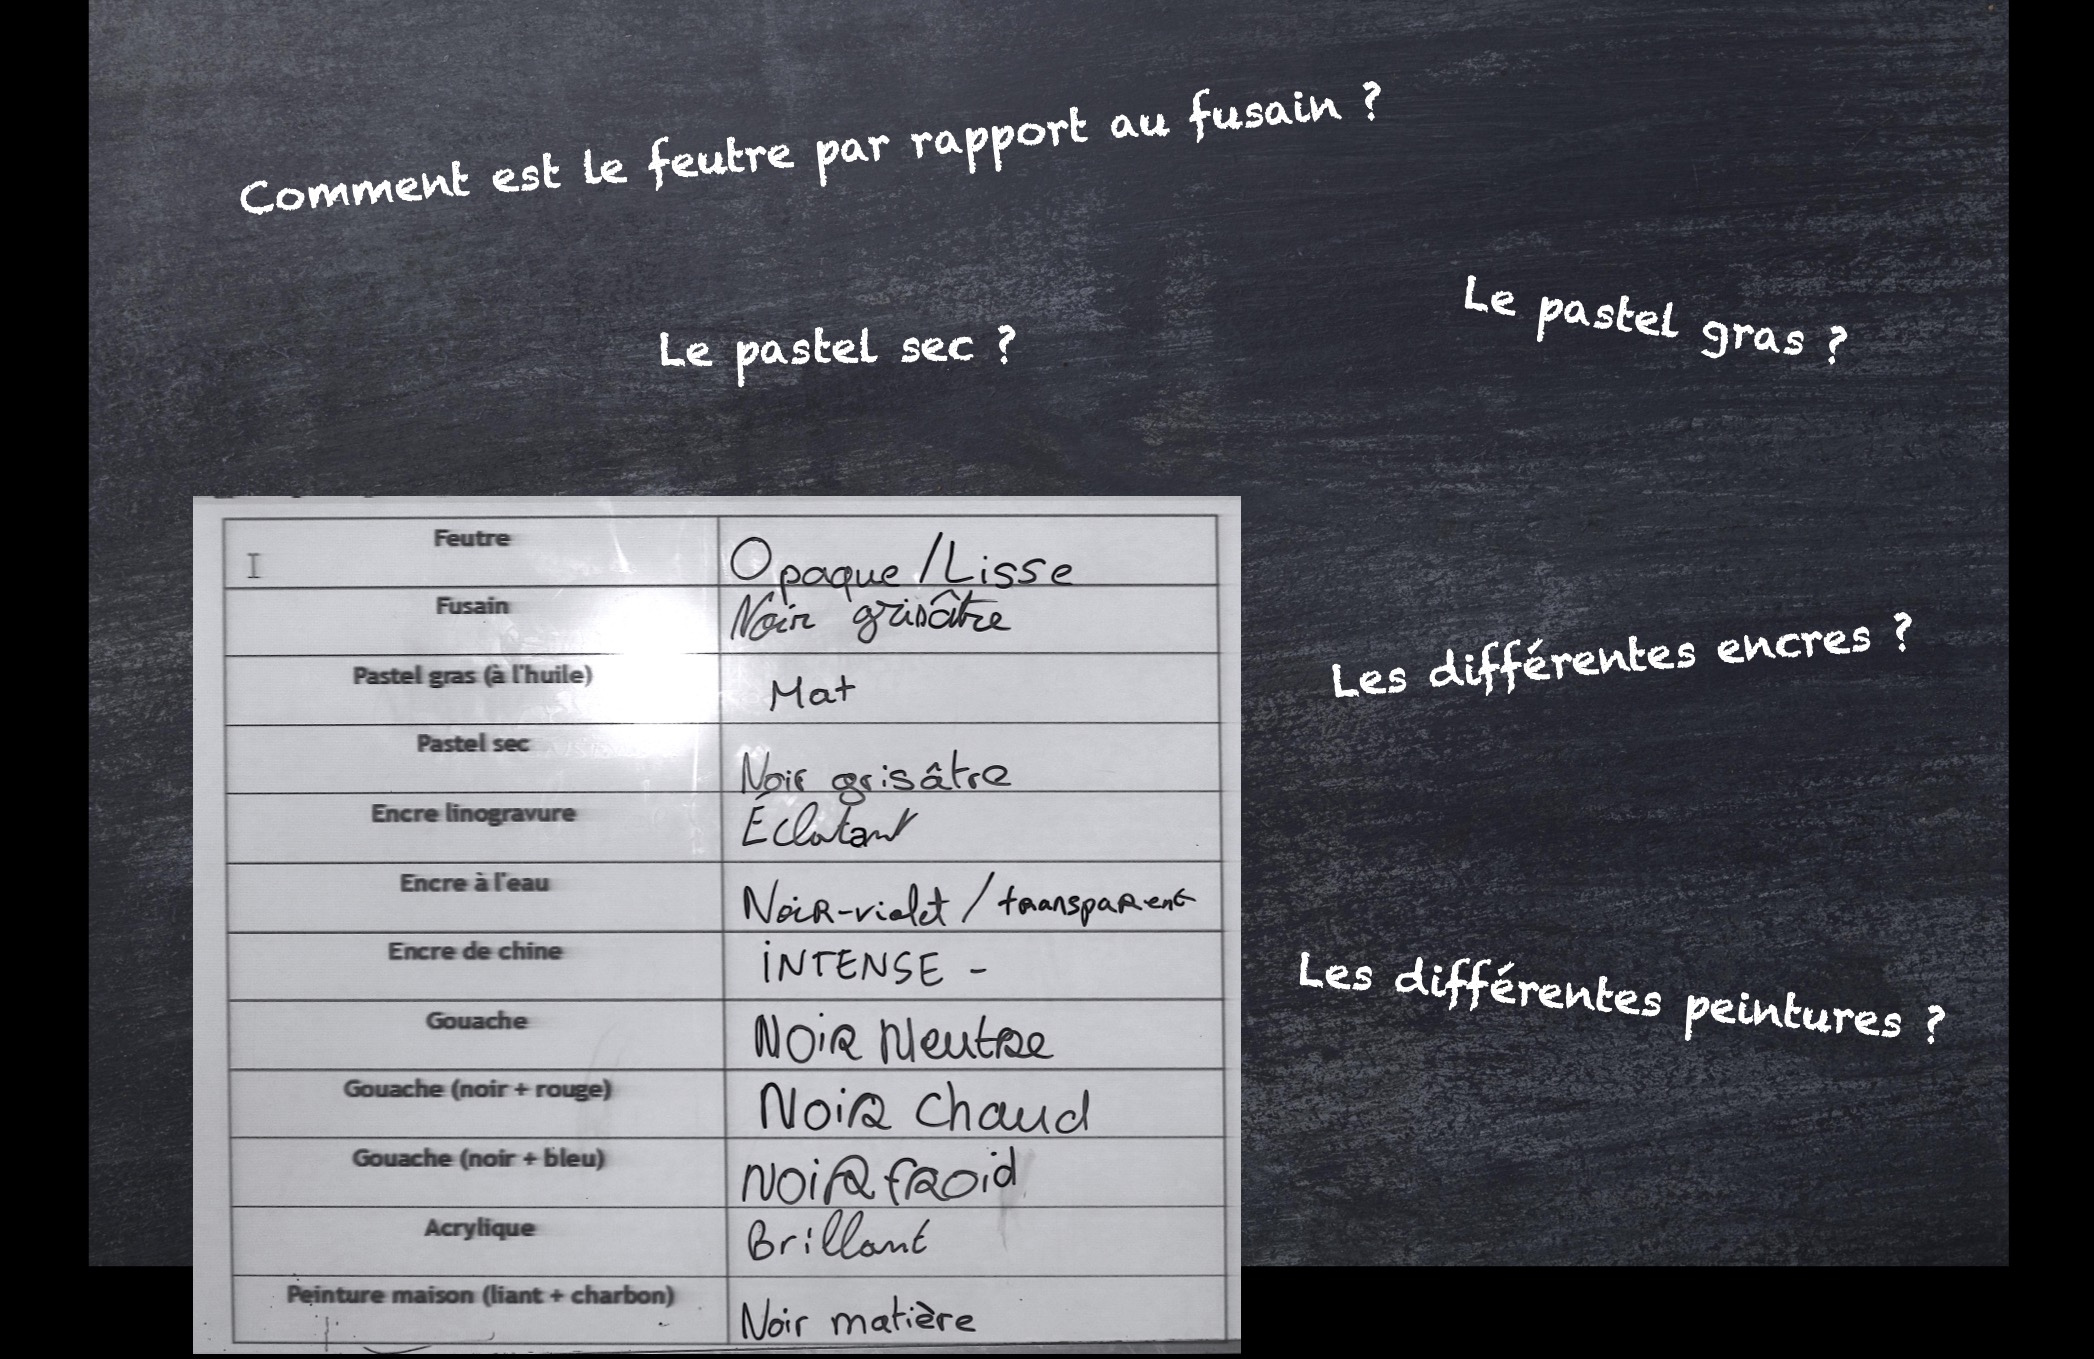 Comment est le feutre par rapport au fusain ?
Le pastel sec ?
Le pastel gras ?
Les différentes encres ?
Les différentes peintures ?
Feutre Opaque / Lisse
Fusain Noir grisâtre
Pastel gras (à l'huile) Mat
Pastel sec Noir grisâtre
Encre linogravure Éclatant
Encre à l'eau Noir-violet / transparent
Encre de chine iNTENSE -
Gouache Noir Neutre
Gouache (noir + rouge) Noir chaud
Gouache (noir + bleu) Noir froid
Acrylique Brillant
Peinture maison (liant + charbon) Noir matière